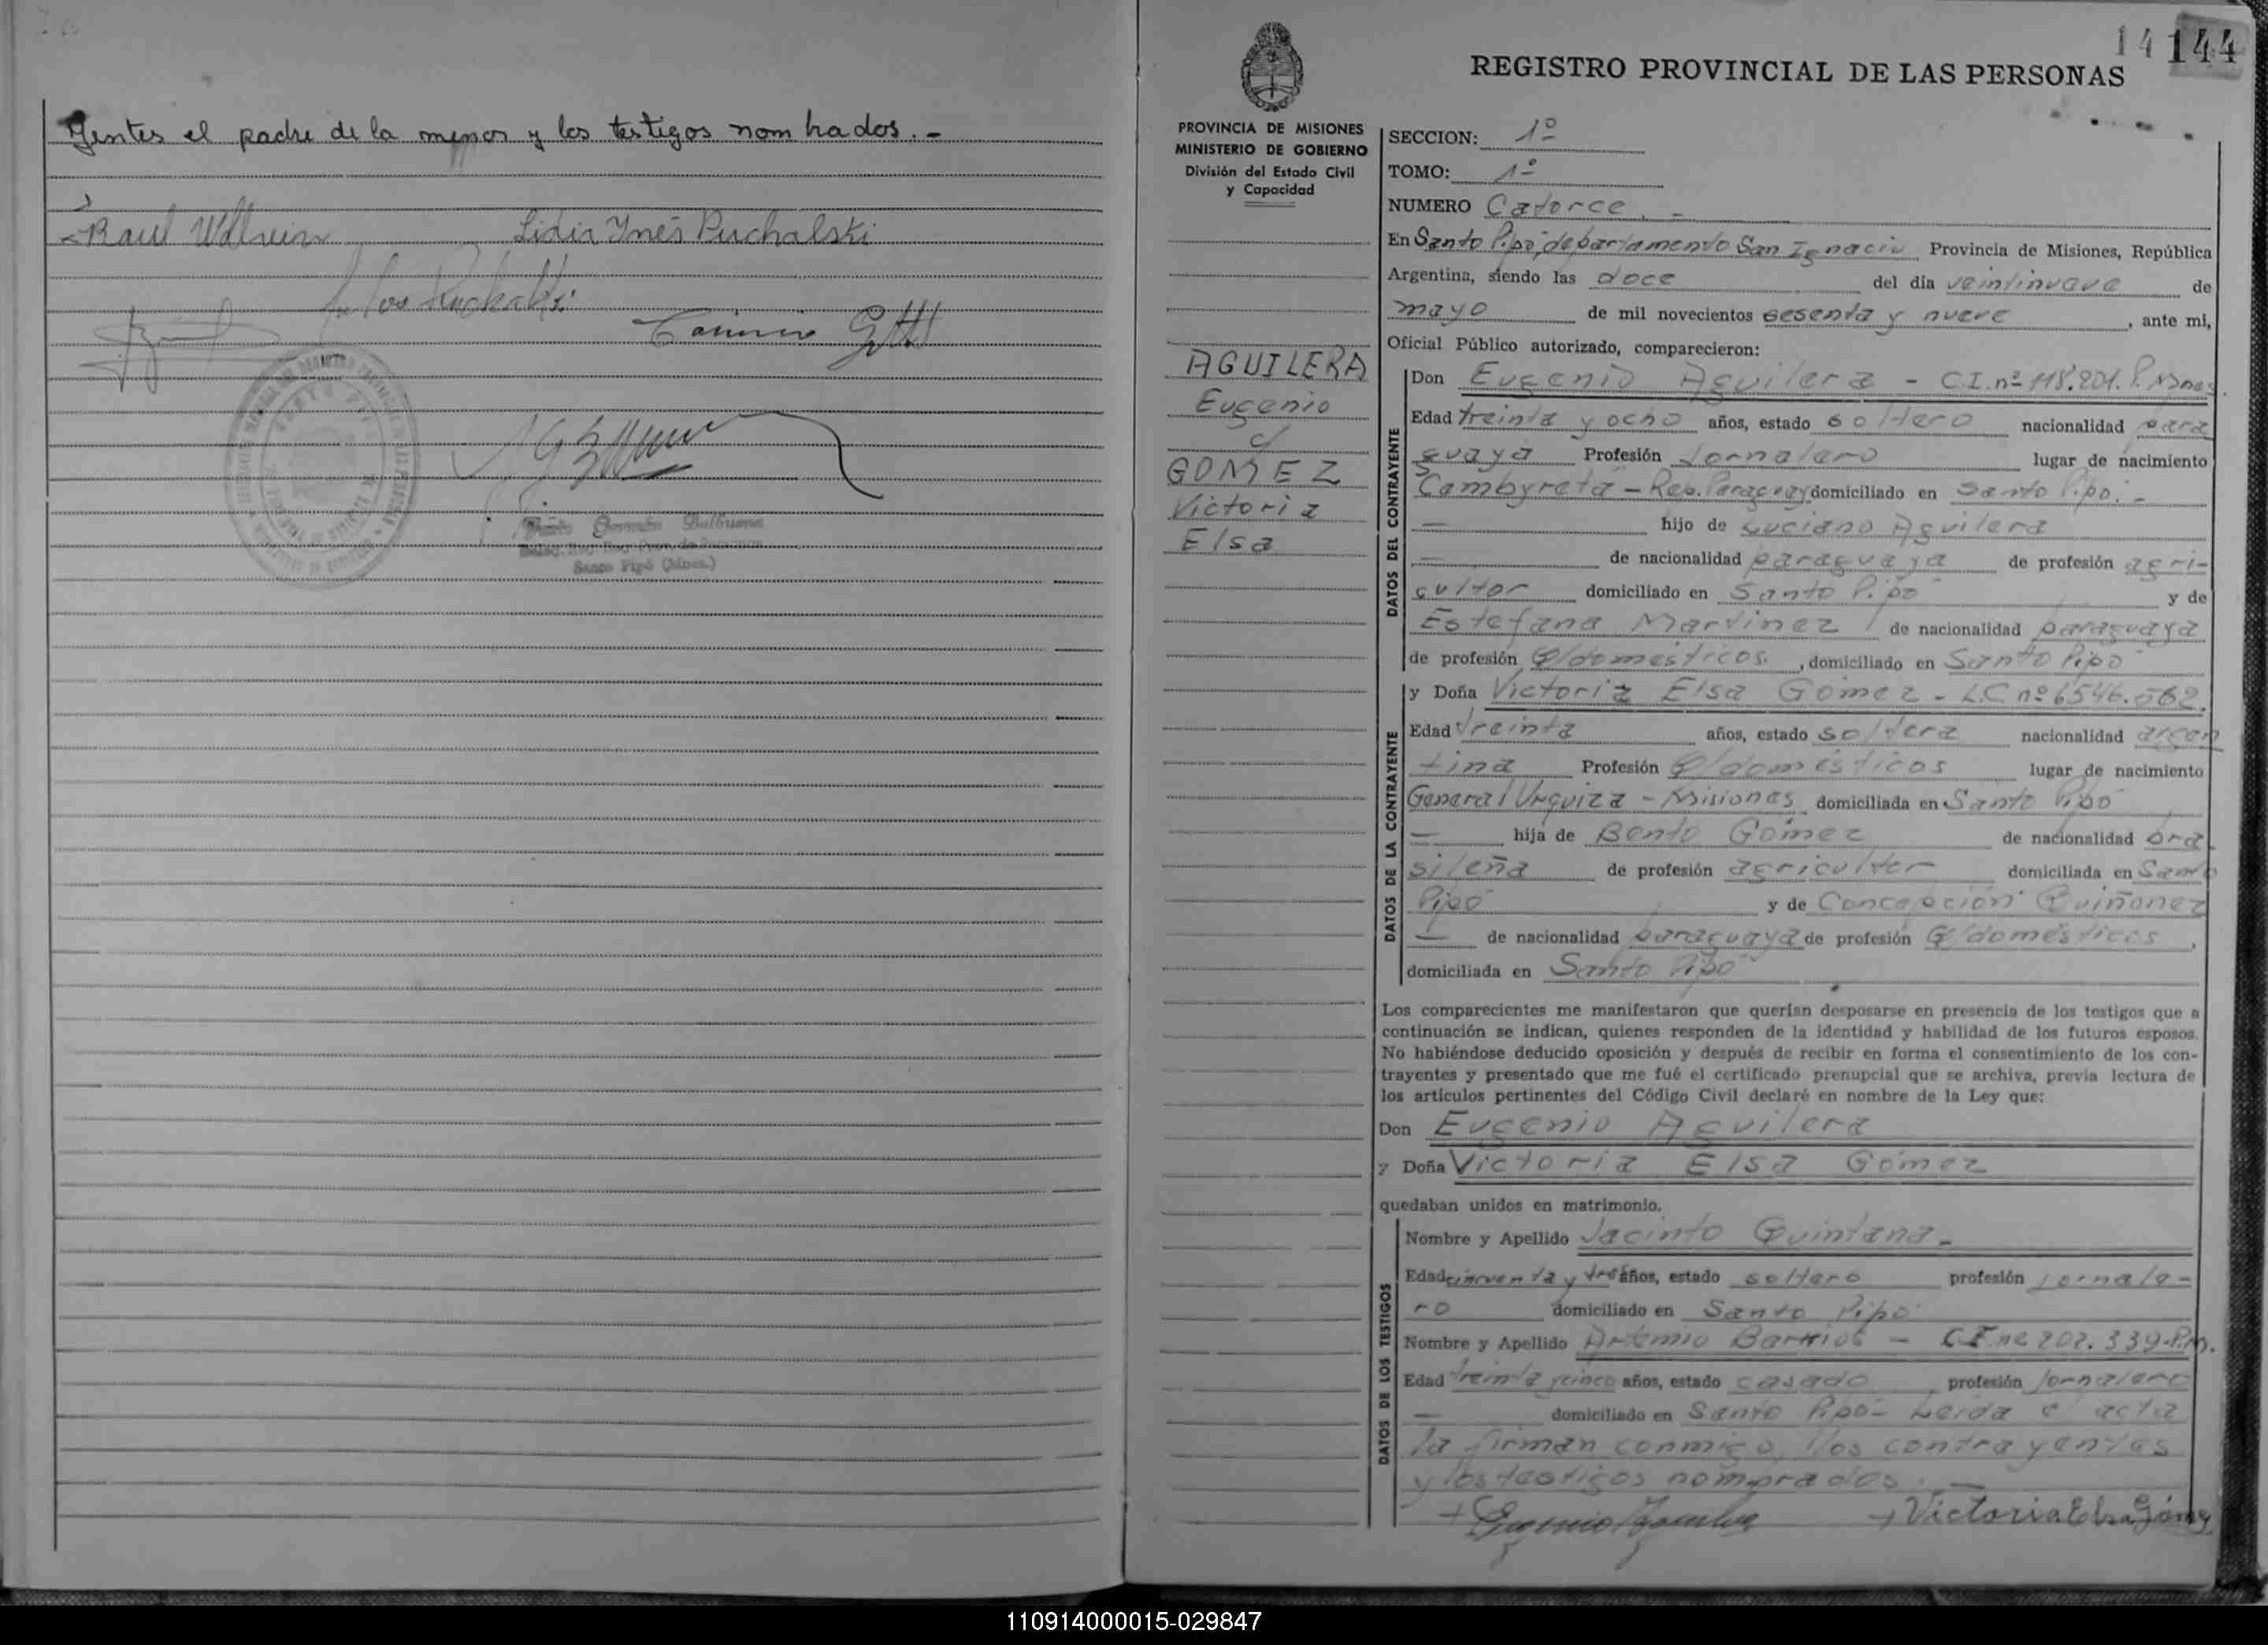 yentes el padre de la menor y los testigos nombrados.-
Raul
Lidia Inés Puchalski
Puchalski
Casimiro
Germán Balbuena
Santo Pipó (Mnes.)
14 144
REGISTRO PROVINCIAL DE LAS PERSONAS
PROVINCIA DE MISIONES
MINISTERIO DE GOBIERNO
División del Estado Civil
y Capacidad
AGUILERA
Eugenio
c/
GOMEZ
Victoria
Elsa
SECCION: 1º
TOMO: 1º
NUMERO Catorce. -
En Santo Pipó, departamento San Ignacio Provincia de Misiones, República
Argentina, siendo las doce del día veintinueve de
mayo de mil novecientos sesenta y nueve, ante mi,
Oficial Público autorizado, comparecieron:
DATOS DEL CONTRAYENTE
Don Eugenio Aguilera - C.I. nº 118.201. P. Mnes.
Edad treinta y ocho años, estado soltero nacionalidad para
guaya Profesión Jornalero lugar de nacimiento
Cambyretá - Rep. Paraguay domiciliado en Santo Pipó. -
— hijo de Luciano Aguilera
— de nacionalidad paraguaya de profesión agri-
cultor domiciliado en Santo Pipó y de
Estefana Martinez de nacionalidad paraguaya
de profesión Q/domésticos., domiciliado en Santo Pipó
DATOS DE LA CONTRAYENTE
y Doña Victoria Elsa Gómez - L.C nº 6546.562.
Edad treinta años, estado soltera nacionalidad argen
tina Profesión Q/domésticos lugar de nacimiento
General Urquiza - Misiones domiciliada en Santo Pipó
— hija de Bento Gómez de nacionalidad bra
sileña de profesión agricultor domiciliada en Santo
Pipó y de Concepción Quiñonez
— de nacionalidad paraguaya de profesión Q/domésticos,
domiciliada en Santo Pipó
Los comparecientes me manifestaron que querían desposarse en presencia de los testigos que a
continuación se indican, quienes responden de la identidad y habilidad de los futuros esposos.
No habiéndose deducido oposición y después de recibir en forma el consentimiento de los con-
trayentes y presentado que me fué el certificado prenupcial que se archiva, previa lectura de
los artículos pertinentes del Código Civil declaré en nombre de la Ley que:
Don Eugenio Aguilera
y Doña Victoria Elsa Gómez
quedaban unidos en matrimonio.
DATOS DE LOS TESTIGOS
Nombre y Apellido Jacinto Quintana -
Edad cincuenta y tres años, estado soltero profesión jornale-
ro domiciliado en Santo Pipó
Nombre y Apellido Artemio Barrios - C.I nº 202.339-P.M.
Edad treinta y cinco años, estado casado profesión jornalero
— domiciliado en Santo Pipó- Leída el acta
la firman conmigo, los contrayentes
y los testigos nombrados. —
+ Eugenio Aguilera + Victoria Elsa Gómez
110914000015-029847